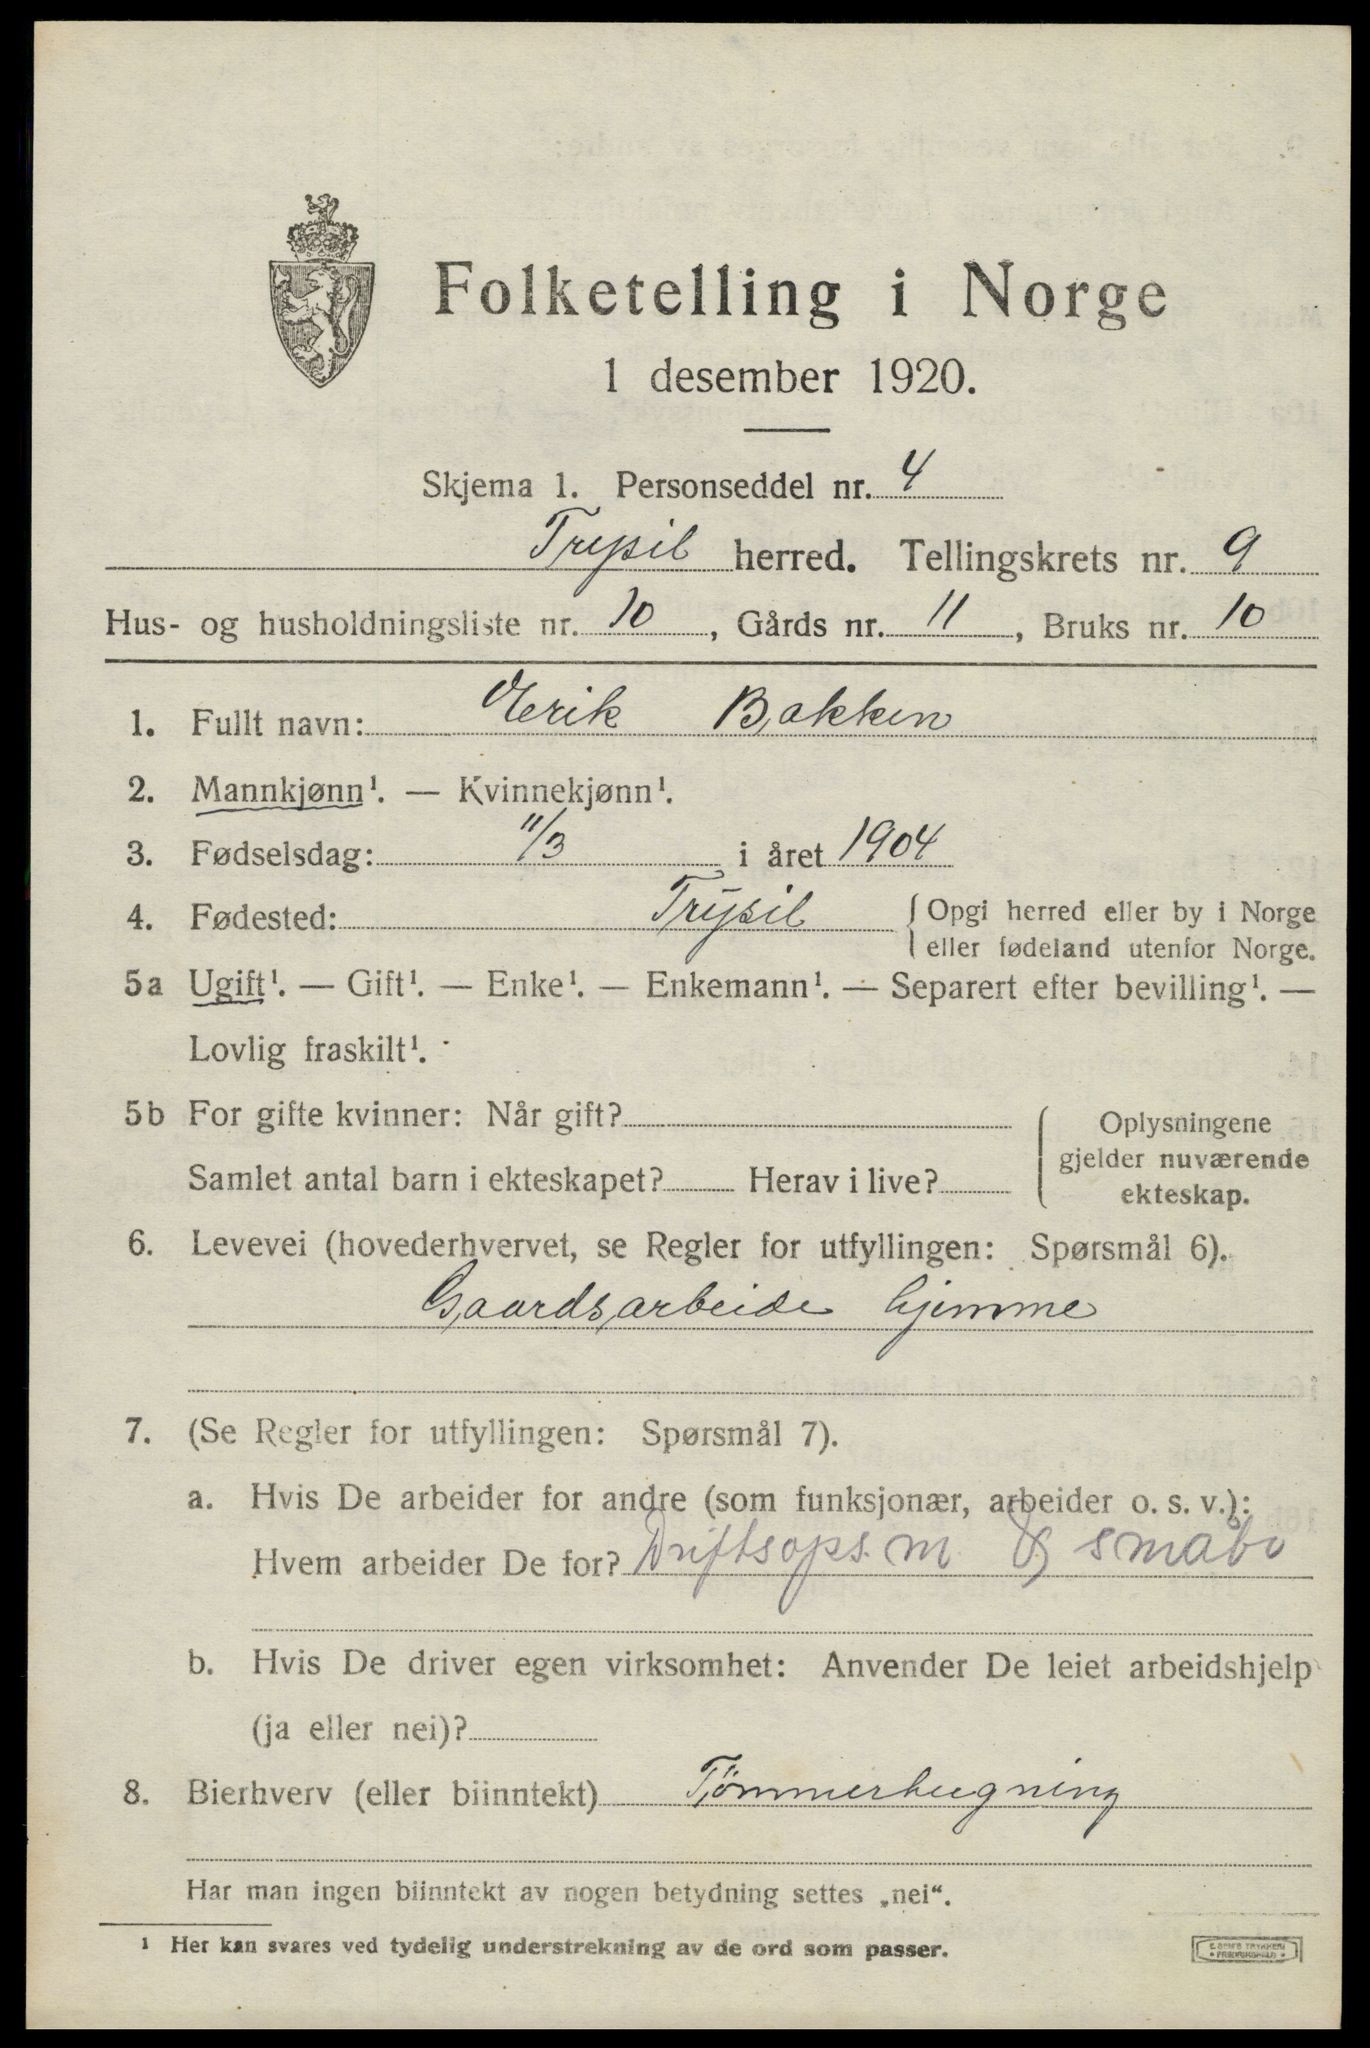 Folketelling i Norge
1 desember 1920.
Skjema 1. Personseddel nr. 4
Trysil herred. Tellingskrets nr. 9
Hus- og husholdningsliste nr. 10, Gårds nr. 11, Bruks nr. 10
1. Fullt navn: Erik Bakken
2. Mannkjønn¹. — Kvinnekjønn¹.
3. Fødselsdag: 11/3 i året 1904
4. Fødested: Trysil { Opgi herred eller by i Norge
eller fødeland utenfor Norge.
5a Ugift¹. — Gift¹. — Enke¹. — Enkemann¹. — Separert efter bevilling¹. —
Lovlig fraskilt¹.
5b For gifte kvinner: Når gift? { Oplysningene
gjelder nuværende
Samlet antal barn i ekteskapet? Herav i live? ekteskap.
6. Levevei (hovederhvervet, se Regler for utfyllingen: Spørsmål 6).
Gaardsarbeide hjemme
7. (Se Regler for utfyllingen: Spørsmål 7).
a. Hvis De arbeider for andre (som funksjonær, arbeider o. s. v.):
Hvem arbeider De for? Driftsops. m
b. Hvis De driver egen virksomhet: Anvender De leiet arbeidshjelp
(ja eller nei)?
8. Bierhverv (eller biinntekt) Tømmerhugning
Har man ingen biinntekt av nogen betydning settes „nei“.
¹ Her kan svares ved tydelig understrekning av de ord som passer.